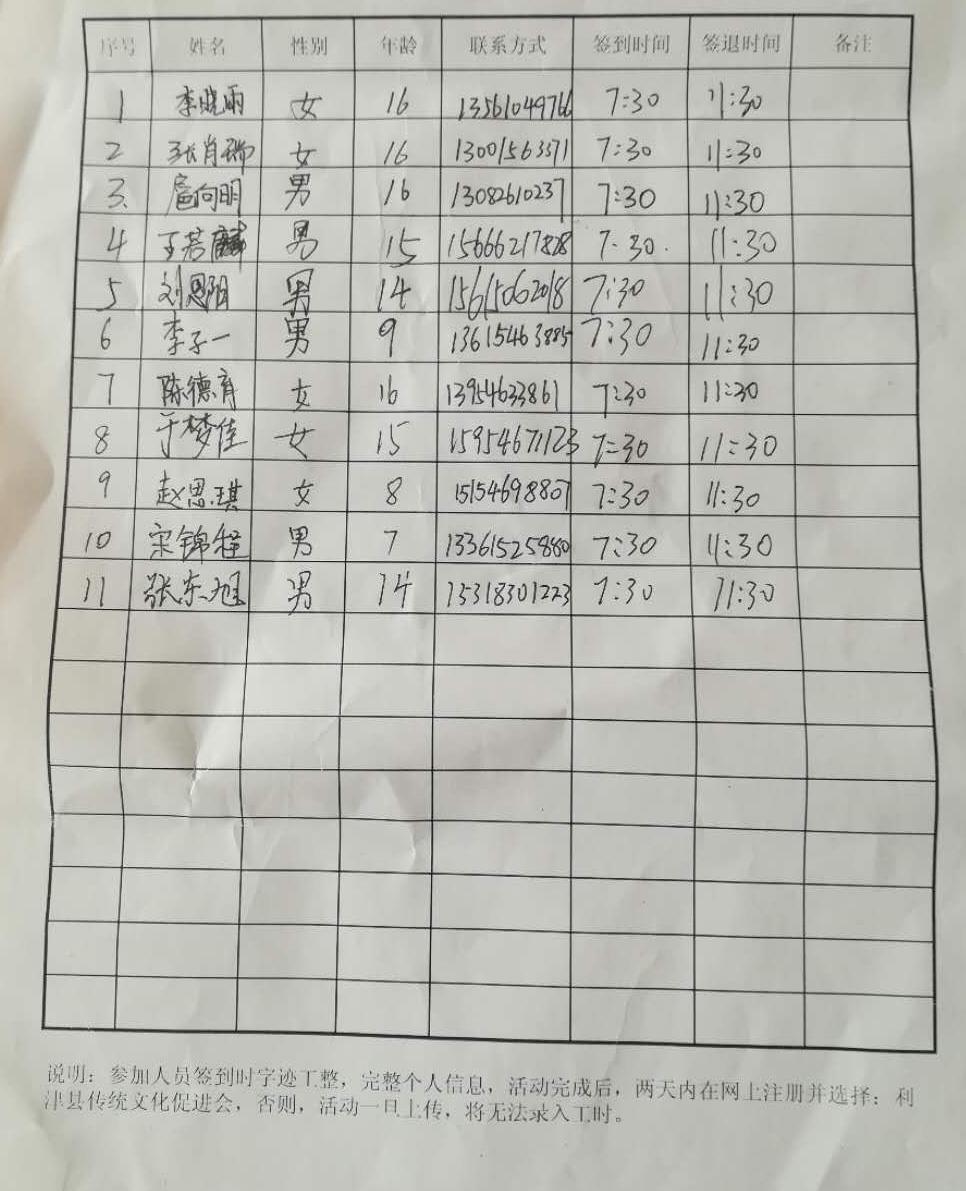 序号 姓名 性别 年龄 联系方式 签到时间 签退时间 备注
1 李晓雨 女 16 13561049766 7:30 11:30
2 张肖瑞 女 16 13001563371 7:30 11:30
3. 扈向明 男 16 13082610237 7:30 11:30
4 王若麟 男 15 15666217828 7:30. 11:30
5 刘恩阳 男 14 15615062018 7:30 11:30
6 李子一 男 9 13615463885 7:30 11:30
7 陈德育 女 16 13954633861 7:30 11:30
8 于梦佳 女 15 15954671123 7:30 11:30
9 赵思琪 女 8 15154698807 7:30 11:30
10 宋锦程 男 7 13361525880 7:30 11:30
11 张东旭 男 14 15318301223 7:30 11:30
说明：参加人员签到时字迹工整，完整个人信息，活动完成后，两天内在网上注册并选择：利
津县传统文化促进会，否则，活动一旦上传，将无法录入工时。